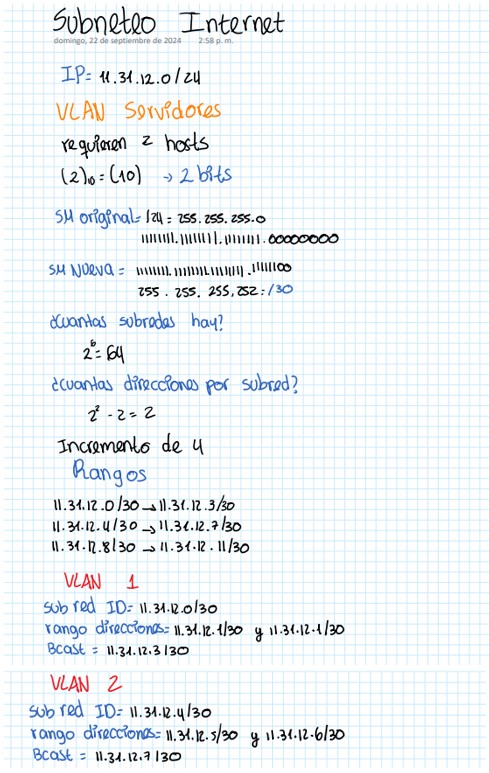 Subneteo Internet
domingo, 22 de septiembre de 2024 2:58 p. m.
IP= 11.31.12.0/24
VLAN Servidores
requieren 2 hosts
(2)10 = (10) → 2 bits
SM original= /24 = 255.255.255.0
11111111.11111111.11111111.00000000
SM Nueva = 11111111.11111111.11111111.11111100
255.255.255.252 : /30
¿Cuantas subredes hay?
2^6 = 64
¿Cuantas direcciones por subred?
2^2 - 2 = 2
Incremento de 4
Rangos
11.31.12.0/30 → 11.31.12.3/30
11.31.12.4/30 → 11.31.12.7/30
11.31.12.8/30 → 11.31.12.11/30
VLAN 1
sub red ID= 11.31.12.0/30
rango direcciones= 11.31.12.1/30 y 11.31.12.1/30
Bcast = 11.31.12.3/30
VLAN 2
sub red ID= 11.31.12.4/30
rango direcciones= 11.31.12.5/30 y 11.31.12.6/30
Bcast = 11.31.12.7/30